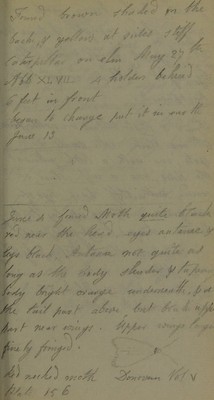 Found brown shaded on the
back, & yellow at sides stiff
Caterpillar on elm May 27th
No XLVII. 4 holders behind
6 feet in front
began to change put it in
June 13
June a found Moth quite black
red near the head eyes antenae &
legs black. Antenae not quite as
long as the body slender &
body bright orange underneath, &
the tail part above, but black upper
part near wings. Upper wings large
finely fringed.
Red necked moth Donovan Vol V
Plate 156